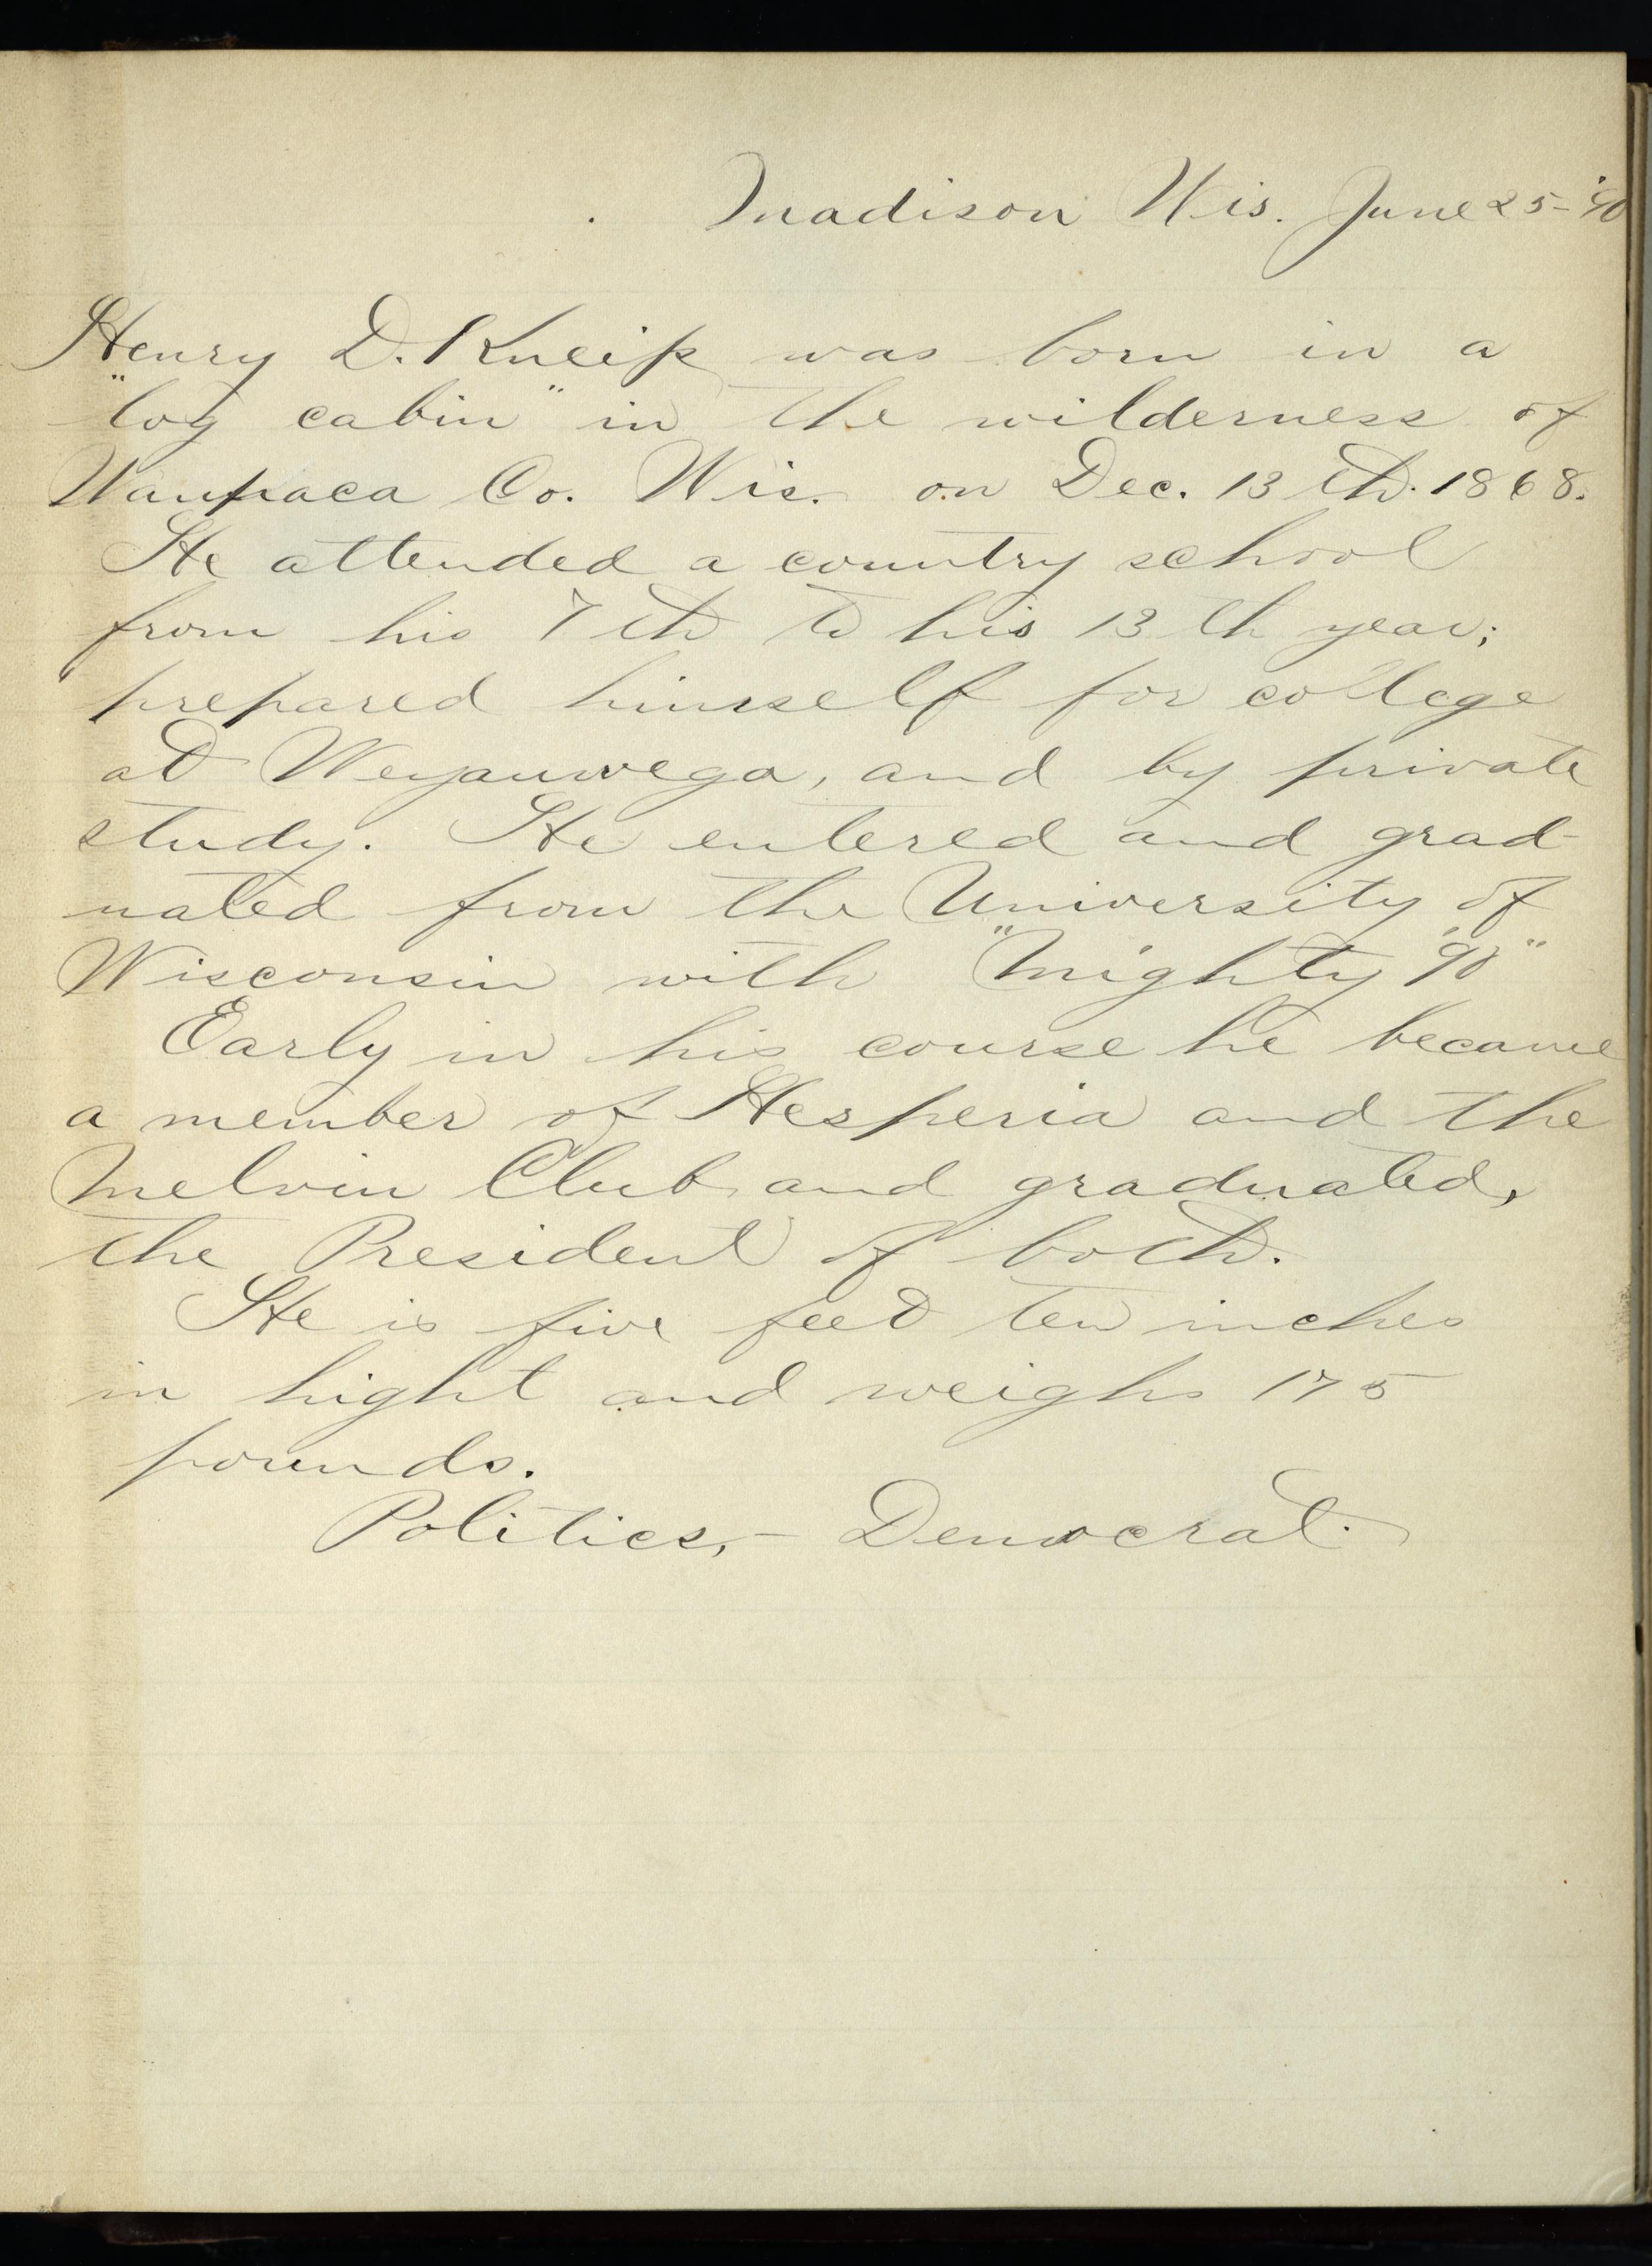 Madison Wis. June 25-'90
Henry D. Kneip was born in a
"log cabin" in the wilderness of
Waupaca Co. Wis. on Dec. 13th. 1868.
He attended a country school
from his 7th to his 13th year;
prepared himself for college
at Weyauwega, and by private
study. He entered and grad-
uated from the University of
Wisconsin with "Mighty '90"
Early in his course he became
a member of Hesperia and the
Melvin Club and graduated,
the President of both.
He is five feet ten inches
in hight and weighs 175
pounds.
Politics,- Democrat.